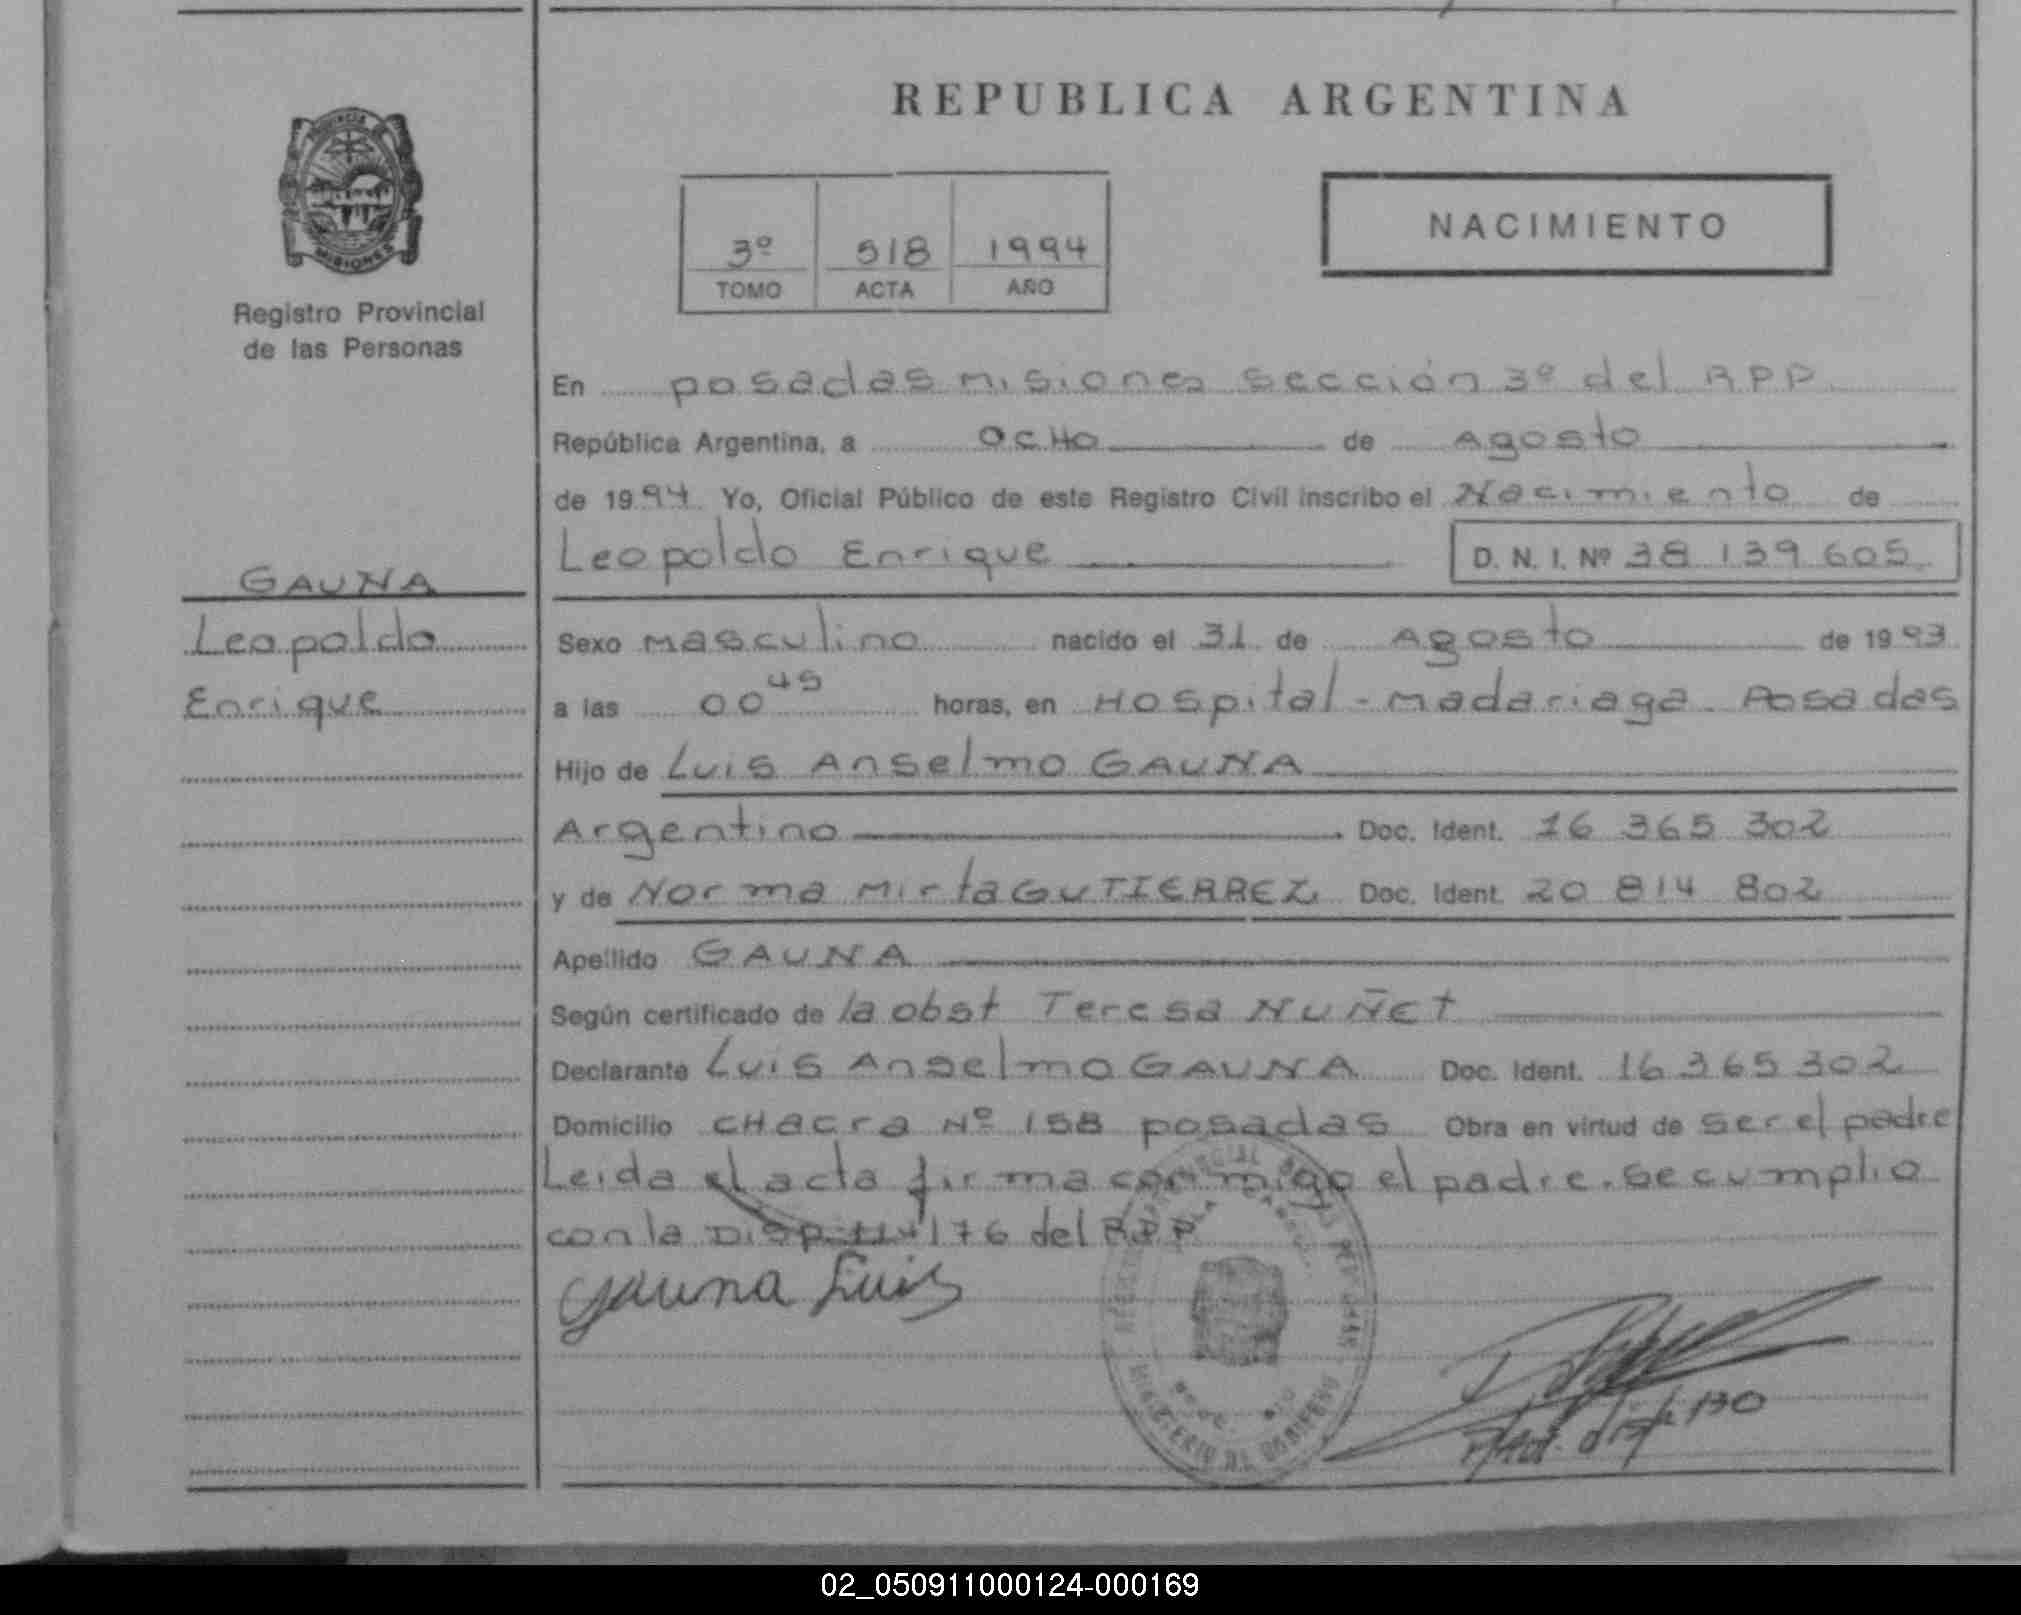 REPUBLICA ARGENTINA
PROVINCIA DE
MISIONES
Registro Provincial
de las Personas
3º 518 1994
TOMO ACTA AÑO
NACIMIENTO
En posadas misiones sección 3º del RPP
República Argentina, a OCHO de Agosto
de 1994 Yo, Oficial Público de este Registro Civil inscribo el Nacimiento de
Leopoldo Enrique D. N. I. Nº 38 139 605
GAUNA
Leopoldo
Enrique
Sexo masculino nacido el 31 de Agosto de 1993
a las 00 45 horas, en Hospital - Madariaga - Posadas
Hijo de Luis Anselmo GAUNA
Argentino Doc. Ident. 16 365 302
y de Norma Mirta GUTIERREZ Doc. Ident. 20 814 802
Apellido GAUNA
Según certificado de la obst Teresa NUÑEt
Declarante Luis Anselmo GAUNA Doc. Ident. 16 365 302
Domicilio CHacra Nº 158 posadas Obra en virtud de ser el padre
Leida el acta firma conmigo el padre. se cumplio
con la DISP 176 del RPP
Gauna Luis
MINISTERIO DE GOBIERNO
130
02_050911000124-000169